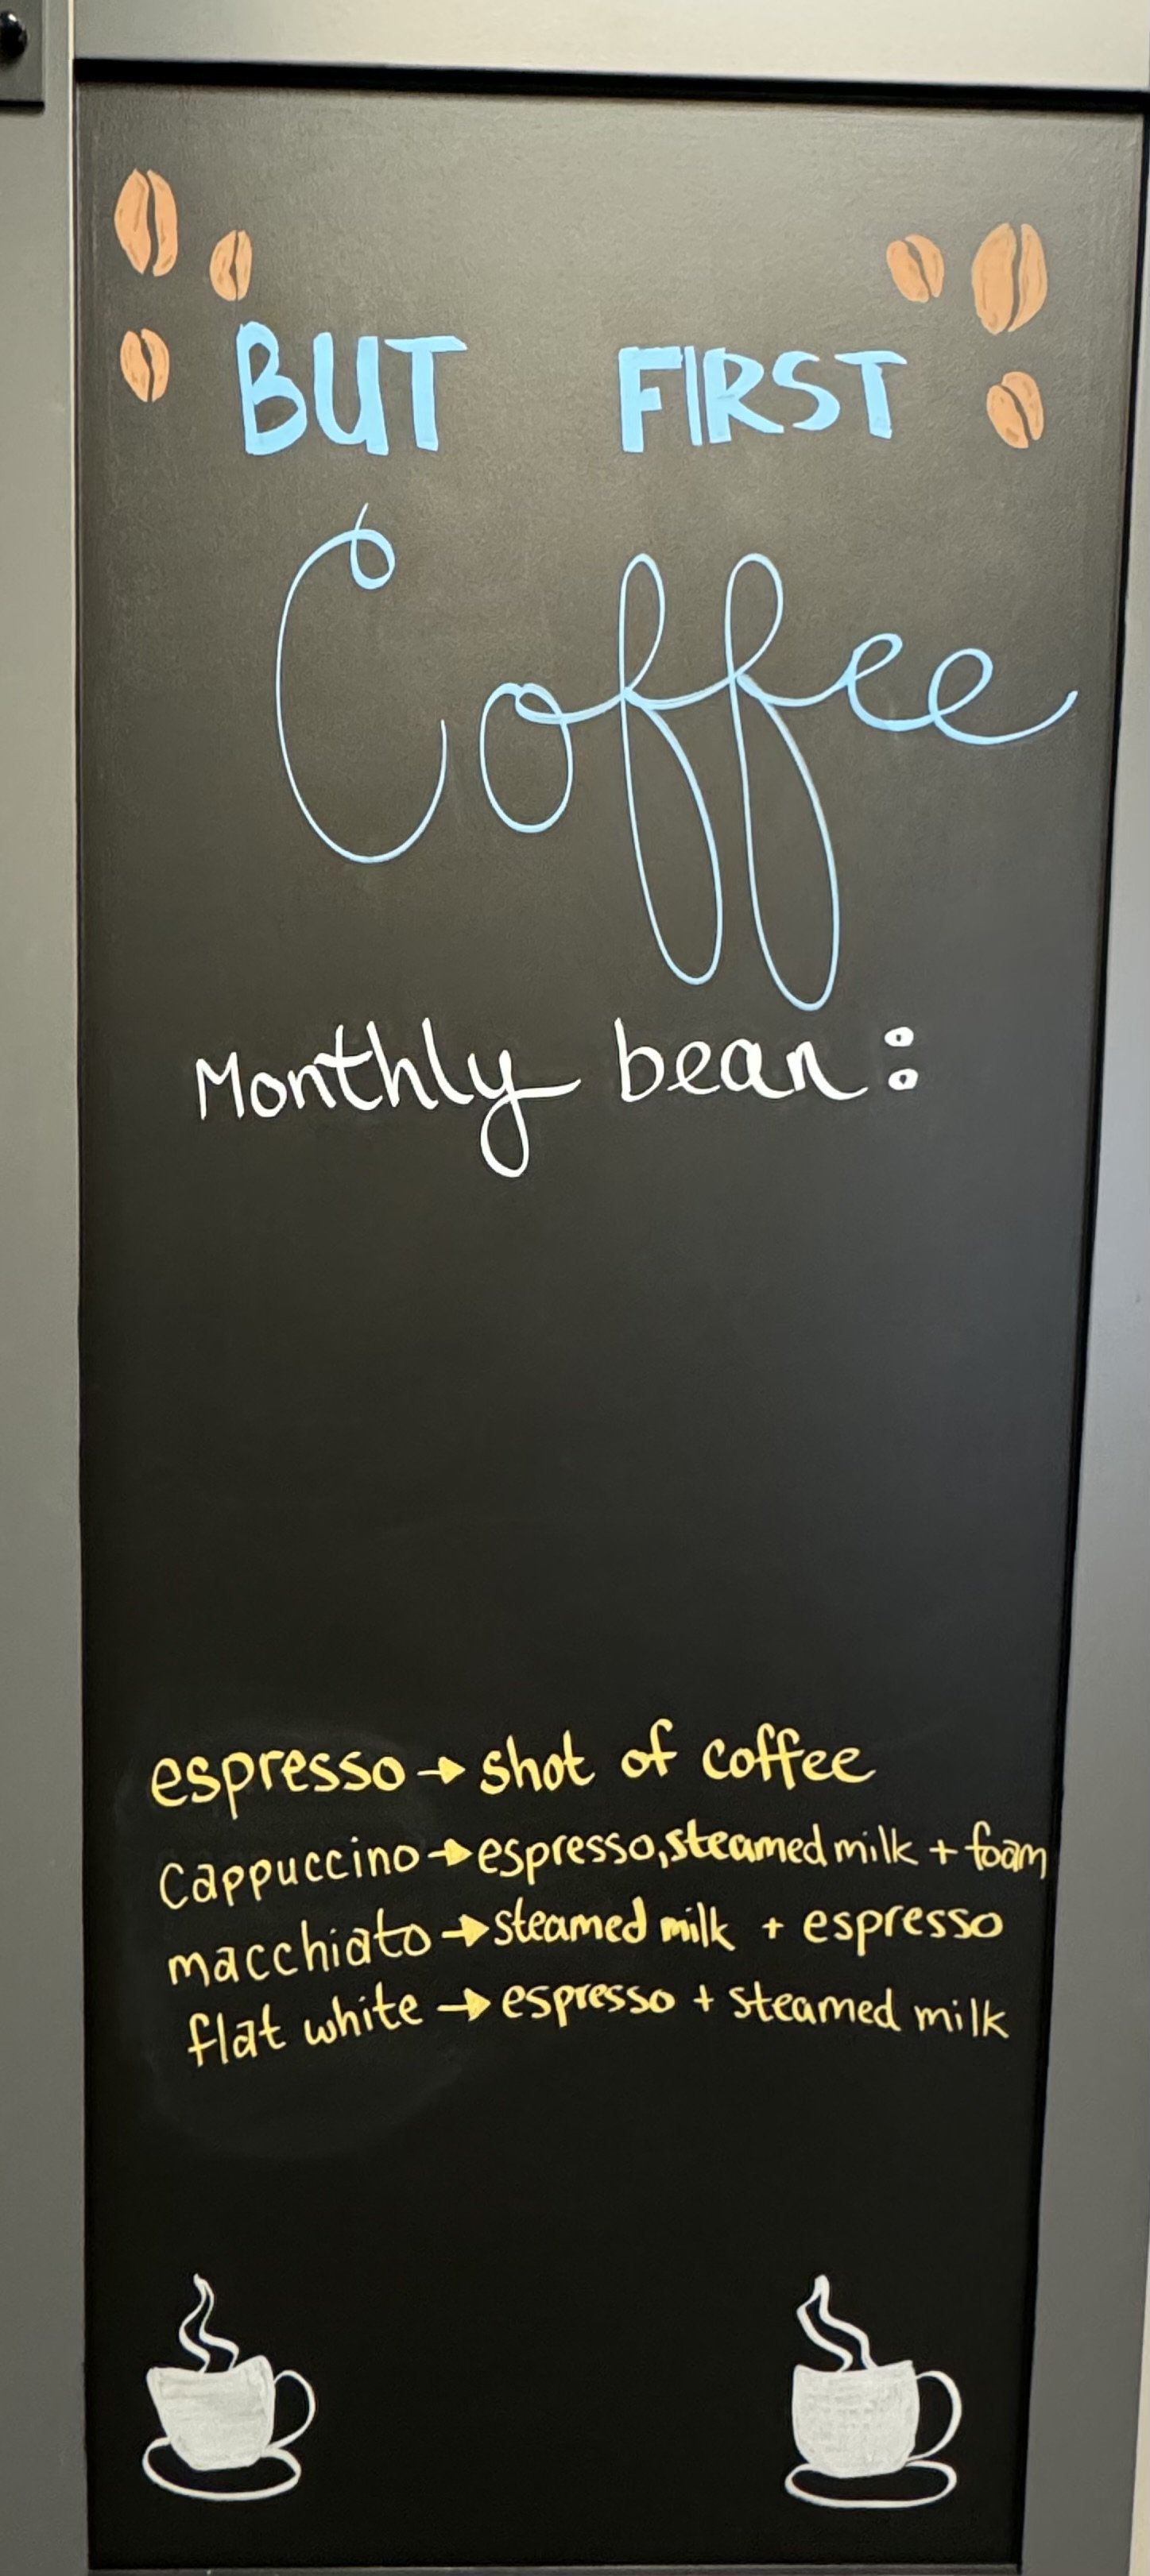 BUT FIRST
Coffee
Monthly bean:
espresso → shot of coffee
cappuccino → espresso, steamed milk + foam
macchiato → steamed milk + espresso
flat white → espresso + steamed milk